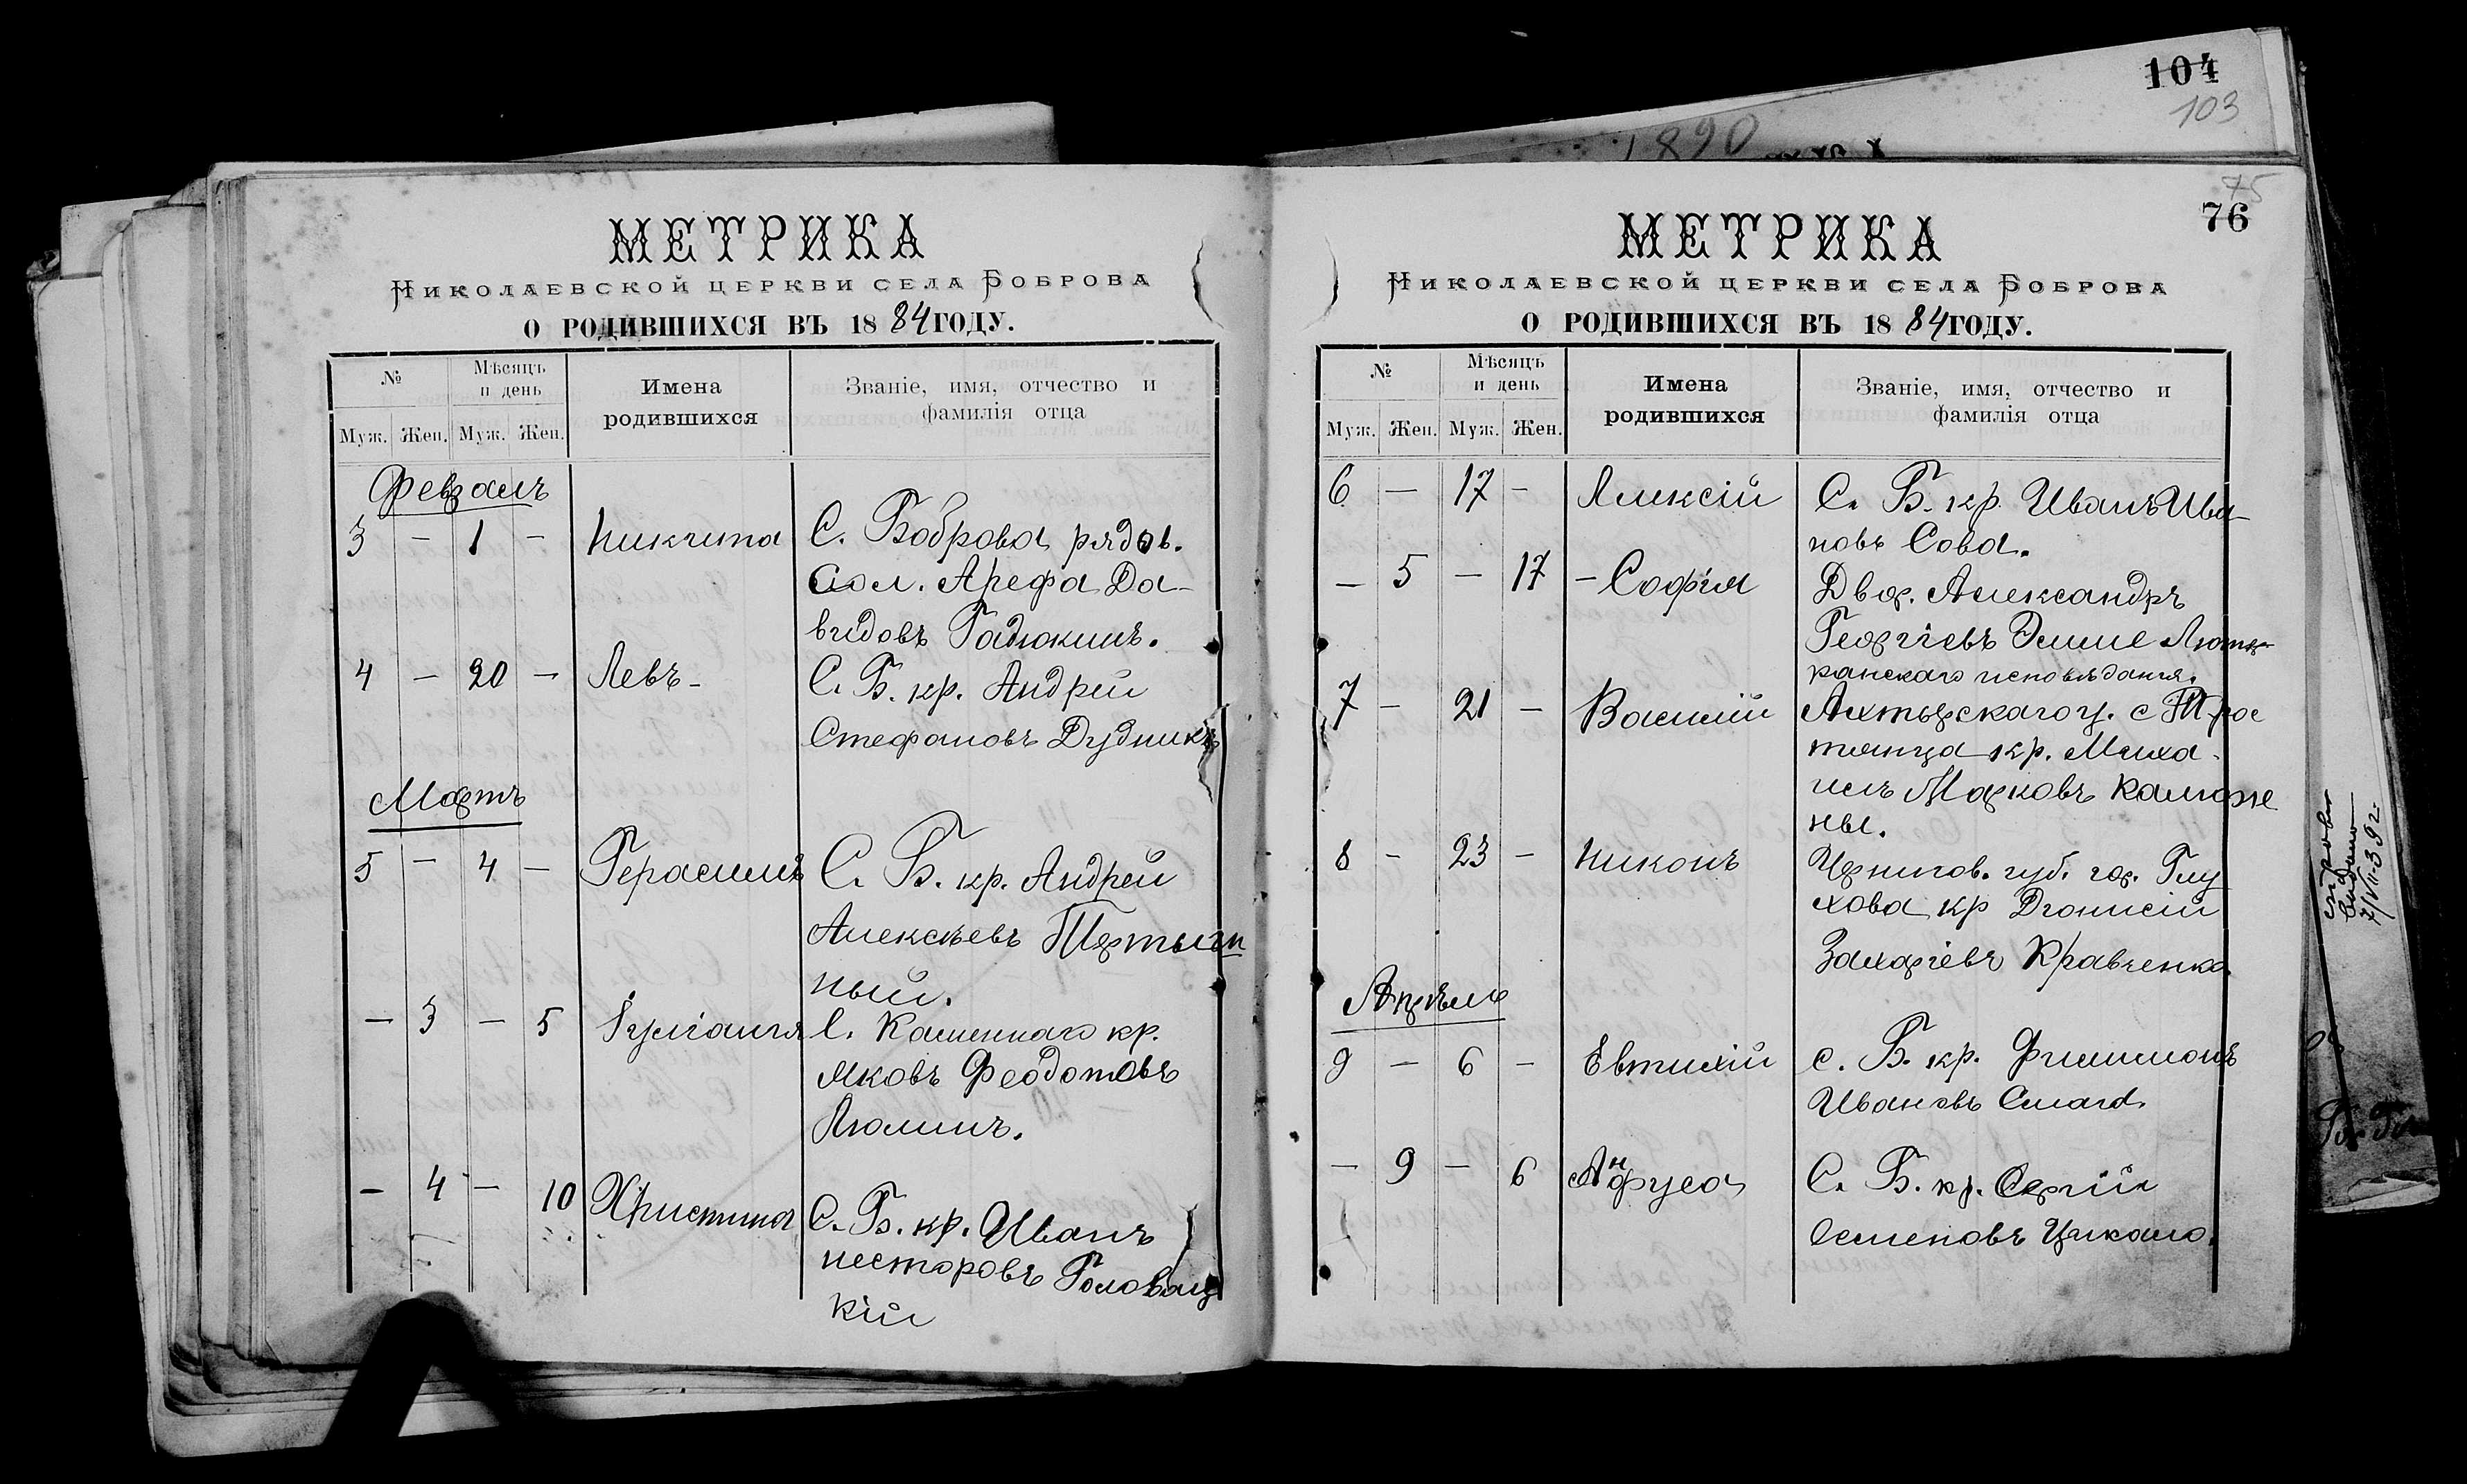 104
103
1890
МЕТРИКА
НИКОЛАЕВСКОЙ ЦЕРКВИ СЕЛА БОБРОВА
О РОДИВШИХСЯ ВЪ 1884 ГОДУ.
№
Мѣсяцъ и день
Имена родившихся
Званіе, имя, отчество и фамилія отца
Муж. Жен. Муж. Жен.
Февраль
3 — 1 — Никита С. Боброва рядов.
сол. Арефа Да-
видовъ Гадюкинъ.
4 — 20 — Левъ - С. Б. кр. Андрей
Стефановъ Дудникъ
Мартъ
5 — 4 — Герасимъ С. Б. кр. Андрей
Алексѣевъ
ный.
— 3 — 5 Іуліанія С. Каменнаго кр.
Яковъ Феодотовъ
Люлинъ.
— 4 — 10 Христина С. Б. кр. Иванъ
Несторовъ Головац
кій
75
76
МЕТРИКА
НИКОЛАЕВСКОЙ ЦЕРКВИ СЕЛА БОБРОВА
О РОДИВШИХСЯ ВЪ 1884 ГОДУ.
№
Мѣсяцъ и день
Имена родившихся
Званіе, имя, отчество и фамилія отца
Муж. Жен. Муж. Жен.
6 — 17 — Алексій С. Б. кр. Иванъ Ива-
новъ Сова.
— 5 — 17 — Софія Двор. Александръ
Георгіевъ Лютер-
ранскаго исповѣданія.
7 — 21 — Василій Ахтырскаго у. с Трос
тянца кр. Миха-
илъ Марковъ Калюж
ны.
8 — 23 — Никонъ Чернигов. губ. гор. Глу
хова кр Діонисій
Захаріевъ Кравченко.
Апрѣль
9 — 6 — Евтихій с. Б. кр. Филимонъ
Ивановъ
— 9 — 6 Анфуса С. Б. кр. Сергій
Семеновъ Цикало.